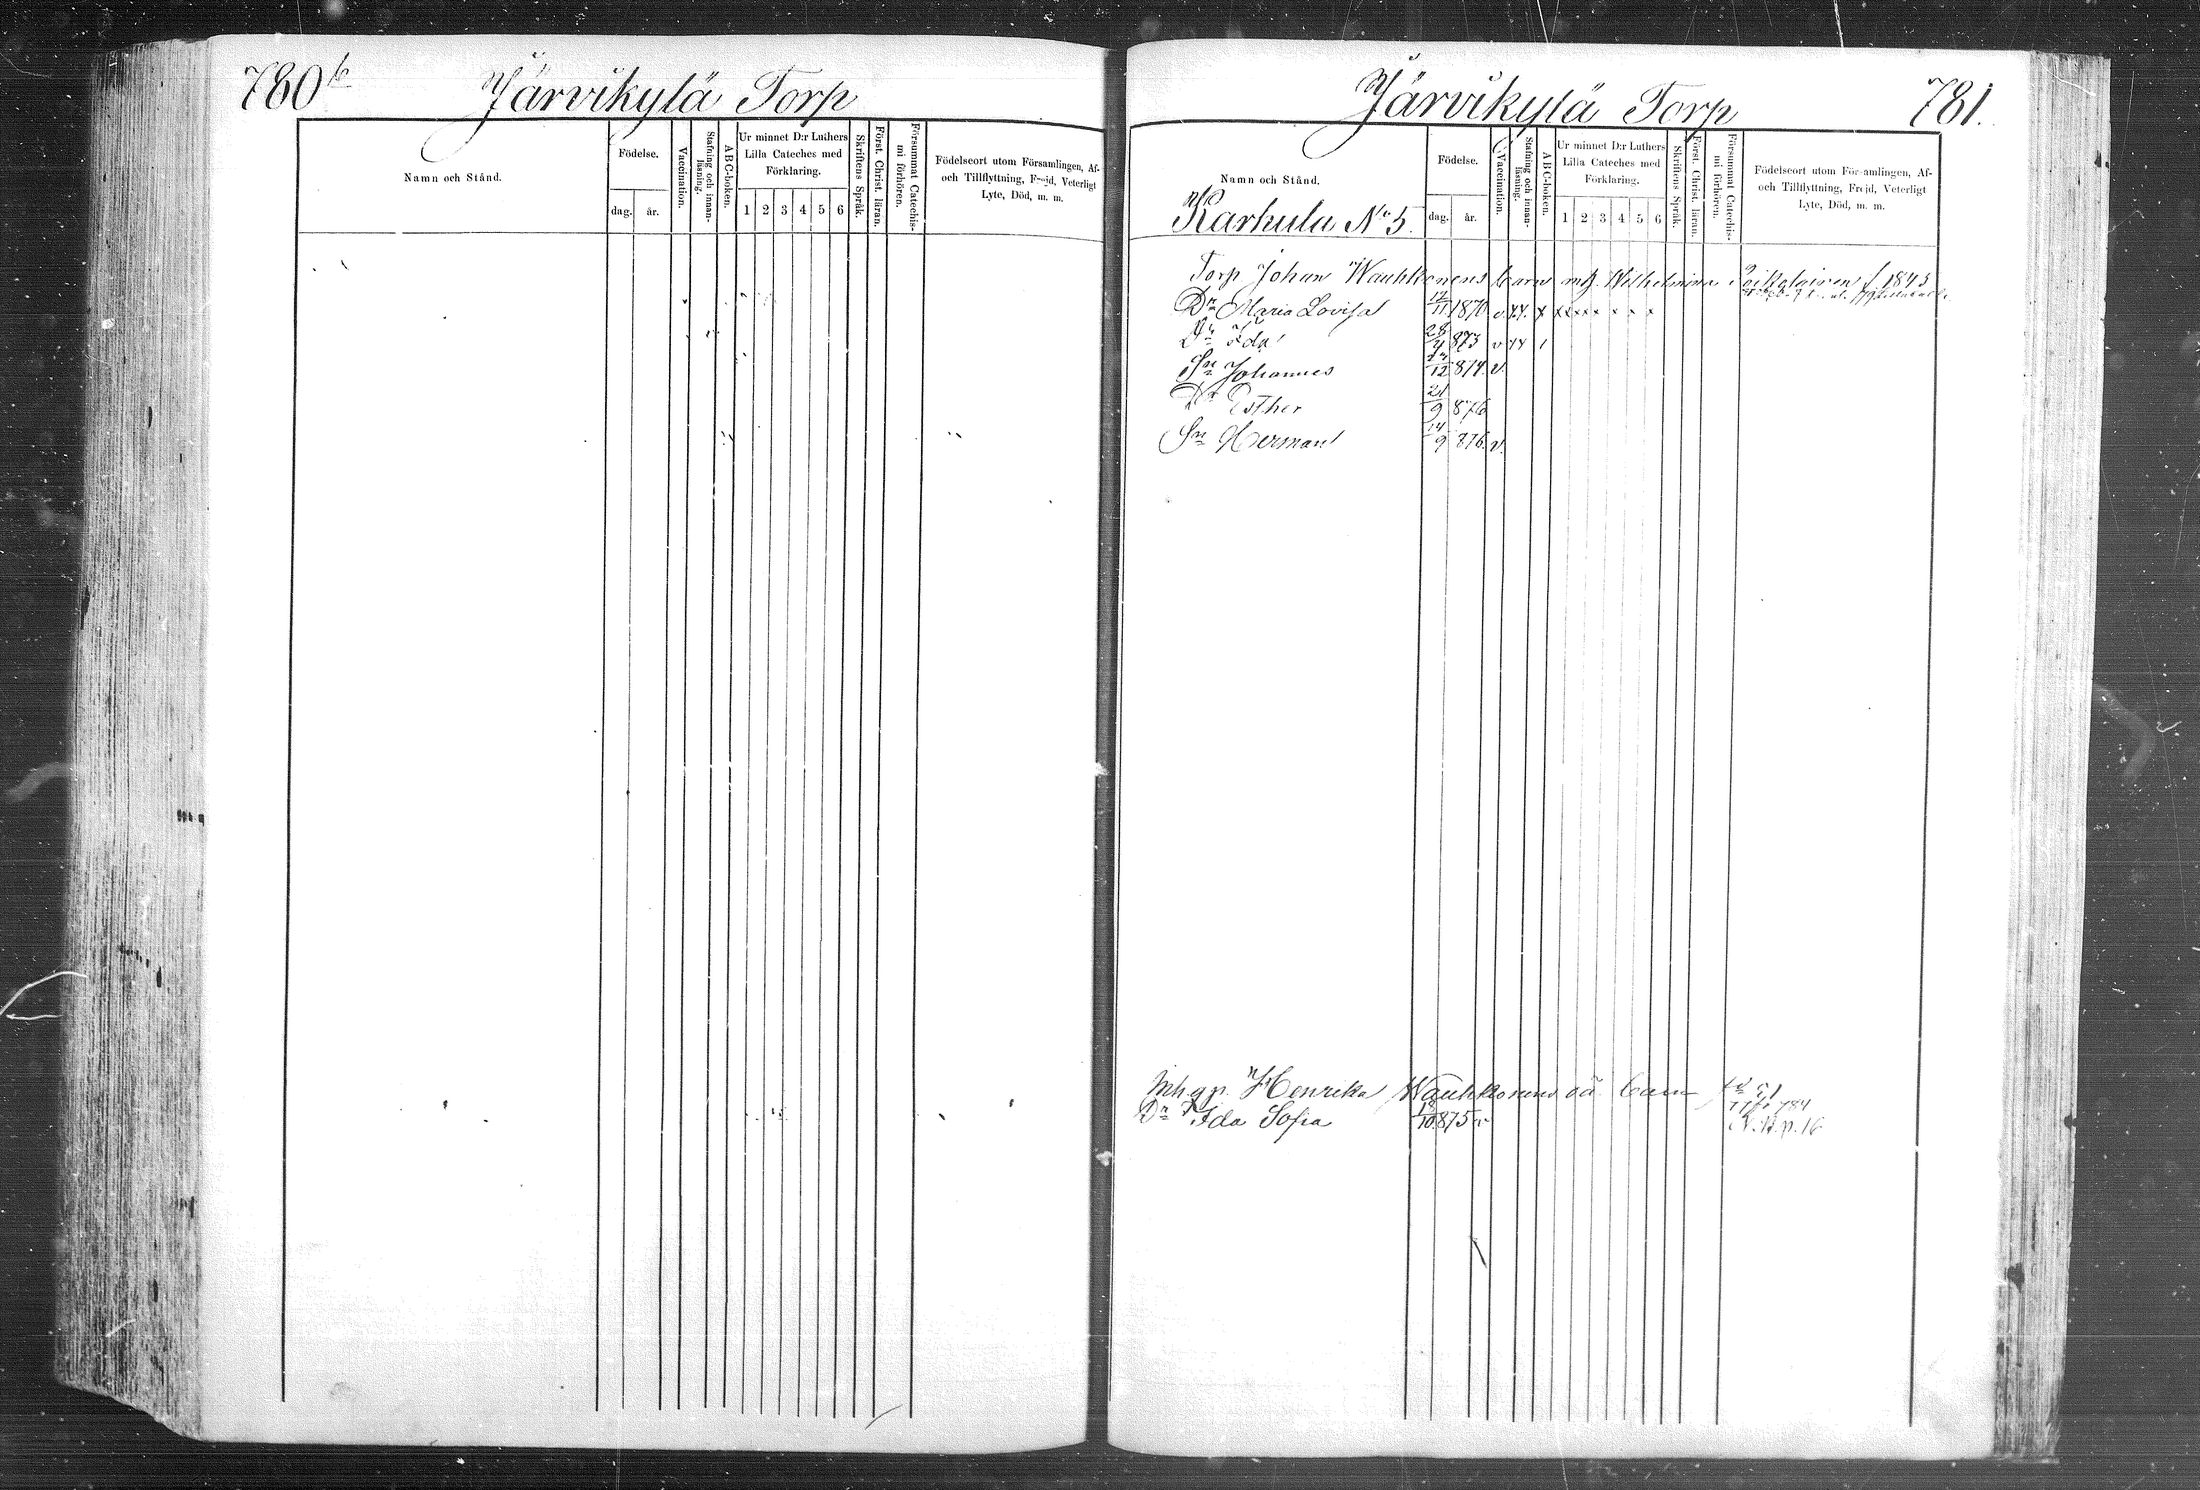 780 b
Järvikylä Torp
Namn och Stånd.
Födelse.
dag.
år.
Vaccination.
Stafning och innan-
läsning.
ABC-boken.
Ur minnet D:r Luthers
Lilla Cateches med
Förklaring.
1 2 3 4 5 6
Skriftens Språk.
Först. Christ. läran.
Försummat Catechis-
mi förhören.
Födelseort utom Församlingen, Af-
och Tillflyttning, Frejd, Veterligt
Lyte, Död, m. m.
Järvikylä Torp
781.
Namn och Stånd.
Födelse.
dag.
år.
Vaccination.
Stafning och innan-
läsning.
ABC-boken.
Ur minnet D:r Luthers
Lilla Cateches med
Förklaring.
1 2 3 4 5 6
Skriftens Språk.
Först. Christ. läran.
Försummat Catechis-
mi förhören.
Födelseort utom Församlingen, Af-
och Tillflyttning, Frejd, Veterligt
Lyte, Död, m. m.
Karhula No 5.
Torp Johan Wauhkonens barn m. Wilhelmina f. 1843
Dr Maria Lovisa 12/11 1870 v. x x x x x x x x x
Dr Ida 28/4 873 v
Sn Johannes 12 874. v.
Dr Esther 21/9 876
Sn Herman 14/9 876. v.
Inh. gp. Henrika Wauhkonens oä barn 784
Dr Ida Sofia 18/10 875 v N.B. p. 16